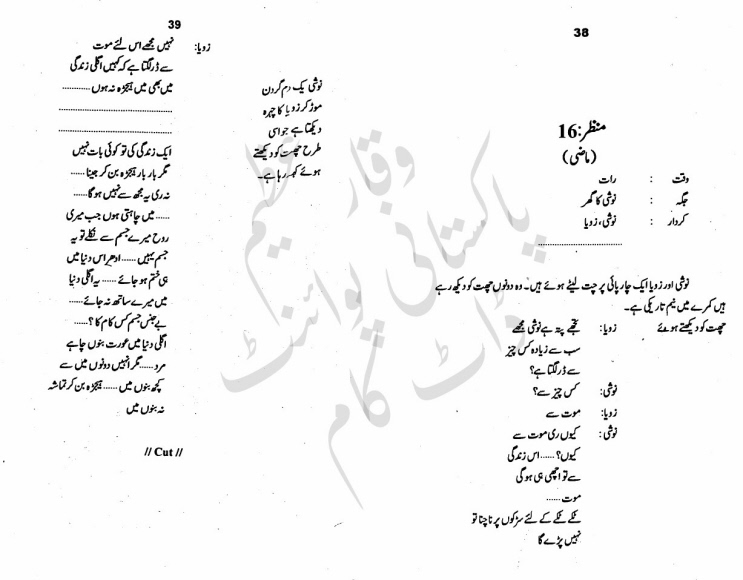 38
منظر:16
(ماضی)
وقت : رات
جگہ : نوشی کا گھر
کردار : نوشی، زویا
نوشی اور زویا ایک چارپائی پر چت لیٹے ہوئے ہیں۔ وہ دونوں چھت کو دیکھ رہے
ہیں کمرے میں نیم تاریکی ہے۔
چھت کو دیکھتے ہوئے
زویا: تجھے پتہ ہے نوشی مجھے
سب سے زیادہ کس چیز
سے ڈر لگتا ہے؟
نوشی: کس چیز سے؟
زویا: موت سے
نوشی: کیوں ری موت سے
کیوں؟...... اس زندگی
سے تو اچھی ہی ہوگی
موت ......
ٹکے ٹکے کے لئے سڑکوں پر ناچنا تو
نہیں پڑے گا
39
نوشی یک دم گردن
موڑ کر زویا کا چہرہ
دیکھتا ہے جو اسی
طرح چھت کو دیکھتے
ہوئے کہہ رہا ہے۔
زویا: نہیں مجھے اس لئے موت
سے ڈر لگتا ہے کہ کہیں اگلی زندگی
میں بھی میں ہیجڑہ نہ ہوں............
ایک زندگی کی تو کوئی بات نہیں
مگر بار بار ہیجڑہ بن کر جینا ......
نہ ری یہ مجھ سے نہیں ہوگا......
...... میں چاہتی ہوں جب میری
روح میرے جسم سے نکلے تو یہ
جسم یہیں...... ادھر اس دنیا میں
ہی ختم ہو جائے...... یہ اگلی دنیا
میں میرے ساتھ نہ جائے......
بے جنس جسم کس کام کا؟......
اگلی دنیا میں عورت بنوں چاہے
مرد...... مگر انہیں دونوں میں سے
کچھ بنوں میں...... ہیجڑہ بن کر تماشہ
نہ بنوں میں
// Cut //
وقار عظیم
پاکستانی پوائنٹ
ڈاٹ کام